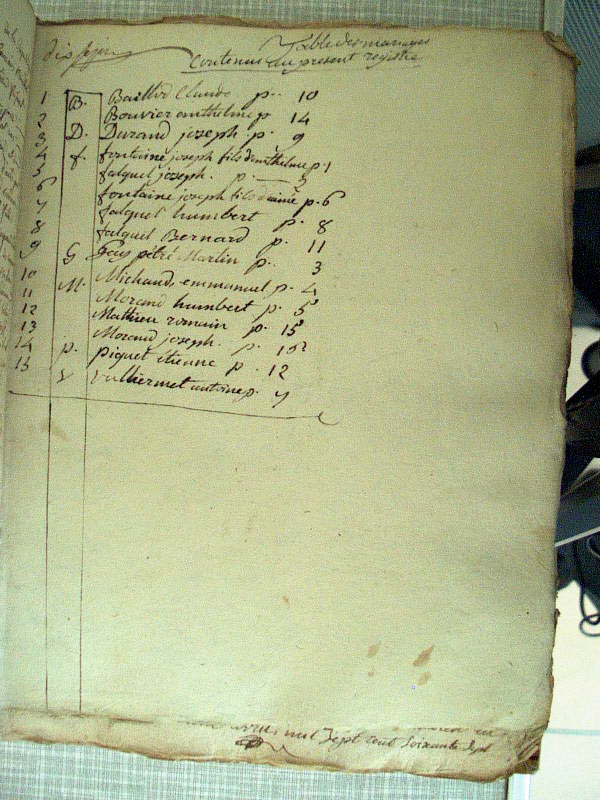 dix sept
Table des mariages
Contenus du present registre
1 B. Baillod Claude p. 10
2 Bouvier anthelme p 14
3 D. Durand joseph p. 9
4 f. fontaine joseph fils d'anthelme p. 1
5 falquet joseph. p. 2
6 fontaine joseph fils d'aimé p. 6
7 falquet humbert p. 8
8 falquet Bernard p. 11
9 G Gay Martin p. 3
10 M. Michaud, emmanuel p. 4
11 Morand humbert p. 5
12 Mathieu romain p. 15
13 Morand joseph. p. 13
14 p. piquet etienne p. 12
15 V Vulliermet antoine p. 7
mil sept cent soixante sept